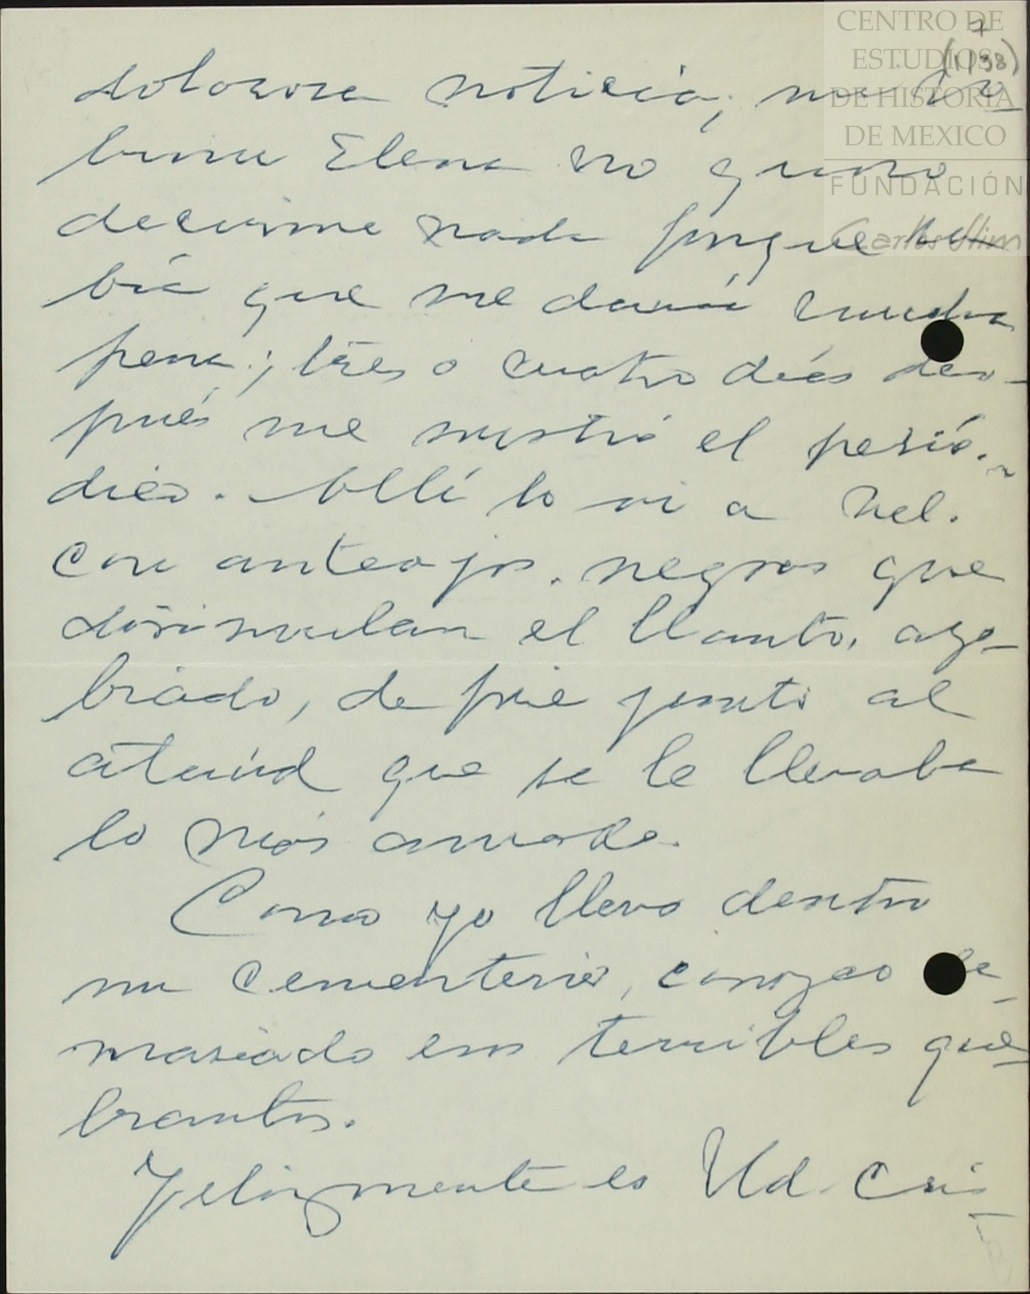 CENTRO DE
ESTUDIOS
DE HISTORIA
DE MEXICO
FUNDACIÓN
Carlos Slim
dolorosa noticia; mi so
brina Elena no quiso
decirme nada porque sa
bía que me daría mucha
pena; tres o cuatro días des-
pués me mostró el perió-
dico. Allí lo vi a Ud.
con anteojos negros que
disimulan el llanto, ago-
biado, de pie junto al
ataúd que se le llevaba
lo más amado.
Como yo llevo dentro
mi cementerio, conozco de-
masiado esos terribles que-
brantos.
Felizmente es Ud. cris-